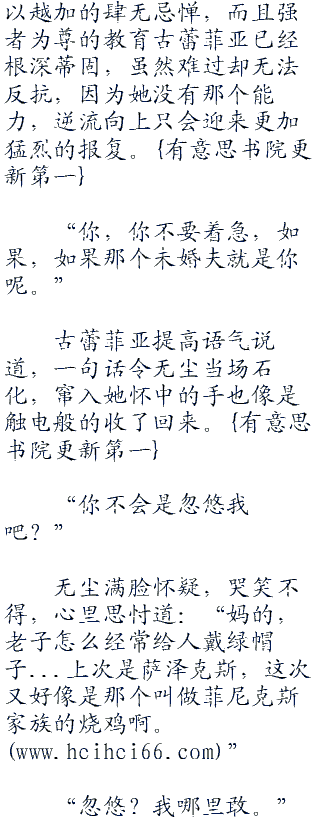 以越加的肆无忌惮，而且强
者为尊的教育古蕾菲亚已经
根深蒂固，虽然难过却无法
反抗，因为她没有那个能
力，逆流向上只会迎来更加
猛烈的报复。{有意思书院更
新第一}
“你，你不要着急，如
果，如果那个未婚夫就是你
呢。”
古蕾菲亚提高语气说
道，一句话令无尘当场石
化，窜入她怀中的手也像是
触电般的收了回来。{有意思
书院更新第一}
“你不会是忽悠我
吧？”
无尘满脸怀疑，哭笑不
得，心里思忖道：“妈的，
老子怎么经常给人戴绿帽
子...上次是萨泽克斯，这次
又好像是那个叫做菲尼克斯
家族的烧鸡啊。
(www.hcihci66.com)”
“忽悠？我哪里敢。”